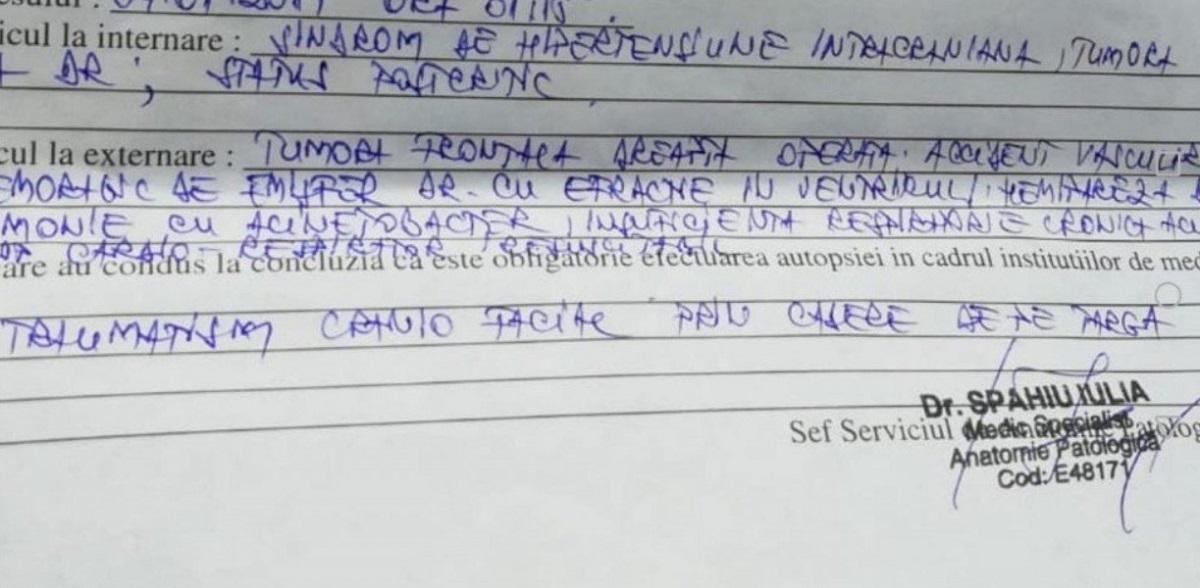 icul la internare : SINDROM DE HIPERTENSIUNE INTRACRANIANA , TUMORA
DR , STATUS POSTCRITIC
cul la externare : TUMORA FRONTALA DREAPTA OPERATA. ACCIDENT VASCULAR
EMORAGIC DE EMISFER DR. CU EFRACTIE IN VENTRICUL , HEMIPAREZA
MONIE CU ACINETOBACTER , INSUFICIENTA RESPIRATORIE CRONICA ACU
CARDIO - RESPIRATOR RESUSCITAT
are au condus la concluzia ca este obligatorie efectuarea autopsiei in cadrul institutiilor de med
TRAUMATISM CRANIO FACIAL PRIN CADERE DE PE TARGA
Dr. SPAHIU IULIA
Sef Serviciul
Medic Specialist
Anatomie Patologica
Cod: E48171